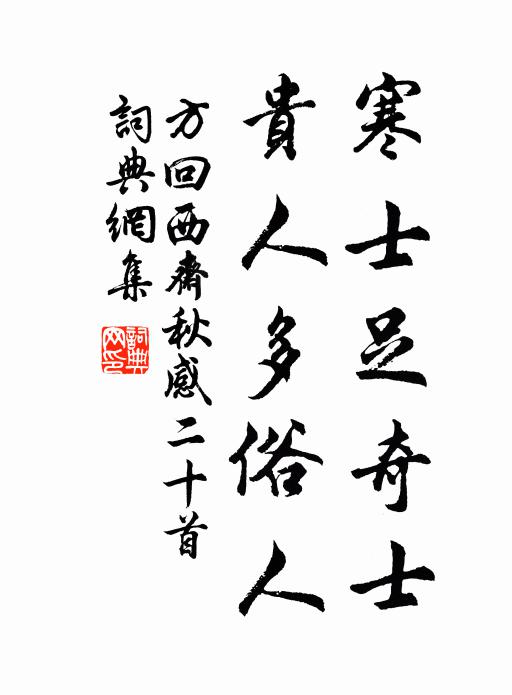 寒士足奇士
貴人多俗人
方回西齋秋感二十首
詞典網集
詞典網印